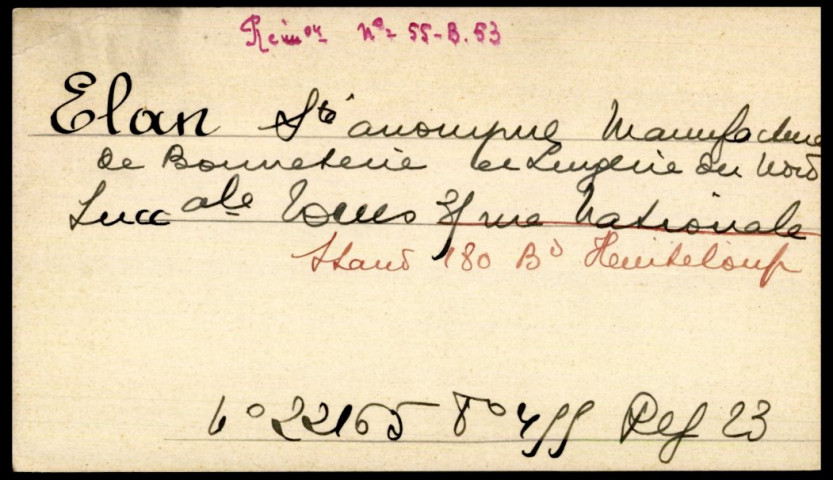 Reim^on n° 55-B.53
Elan Sté anonyme Manufacture
de Bonneterie et Lingerie du Nord
Succ^ale Tours 31 rue Nationale
Stand 180 B^d Heurteloup
22165 F° 499 Reg 23